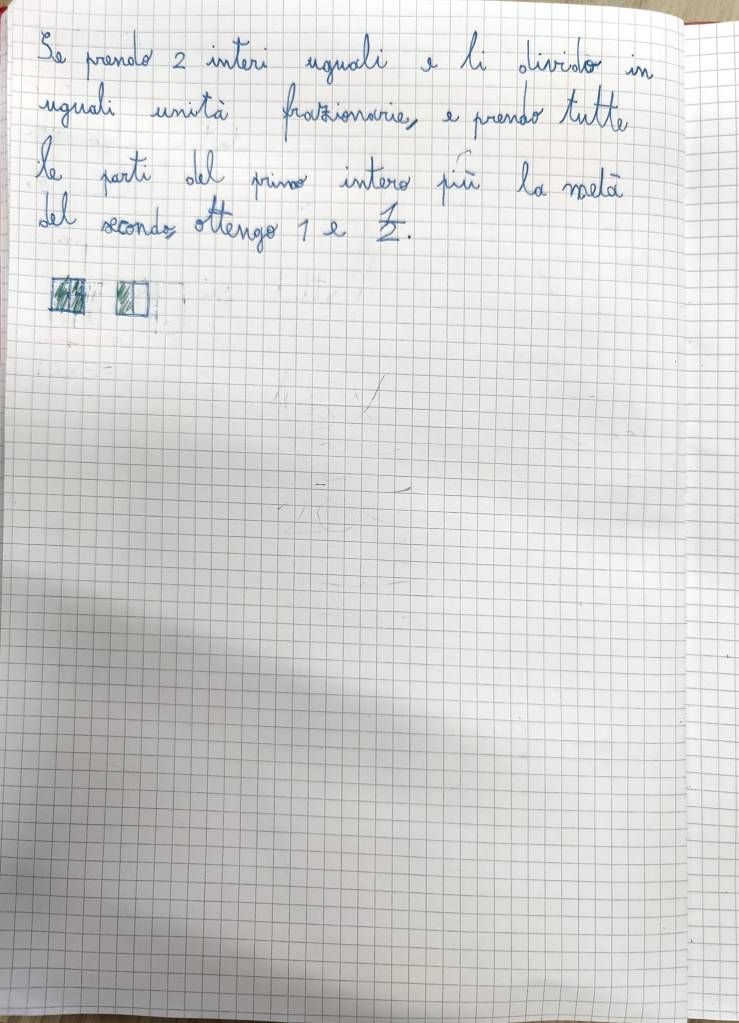 Se prendo 2 interi uguali e li divido in
uguali unità frazionarie, e prendo tutte
le parti del primo intero più la metà
del secondo, ottengo 1 e 1/2.